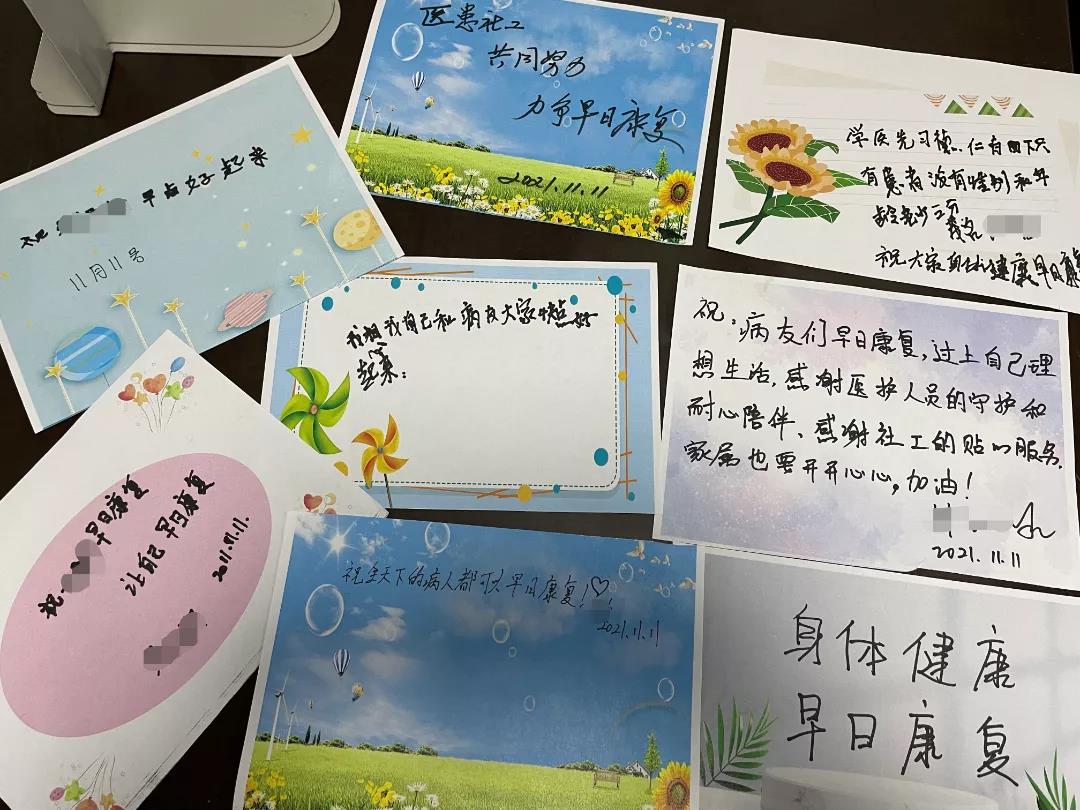 医患社工
共同努力
力争早日康复
2021.11.11
学医先习德..仁有
有患者没有性别和年
祝大家身体健康早日康
早点好起来
11月11号
我祝我自己和病友大家快点好
起来:
祝:病友们早日康复,过上自己理
想生活,感谢医护人员的守护和
耐心陪伴、感谢社工的贴心服务.
家属也要开开心心,加油!
2021.11.11
祝 早日康复
让自己早日康复
2011.01.11.
祝全天下的病人都可以早日康复!♡
2021.11.11
身体健康
早日康复